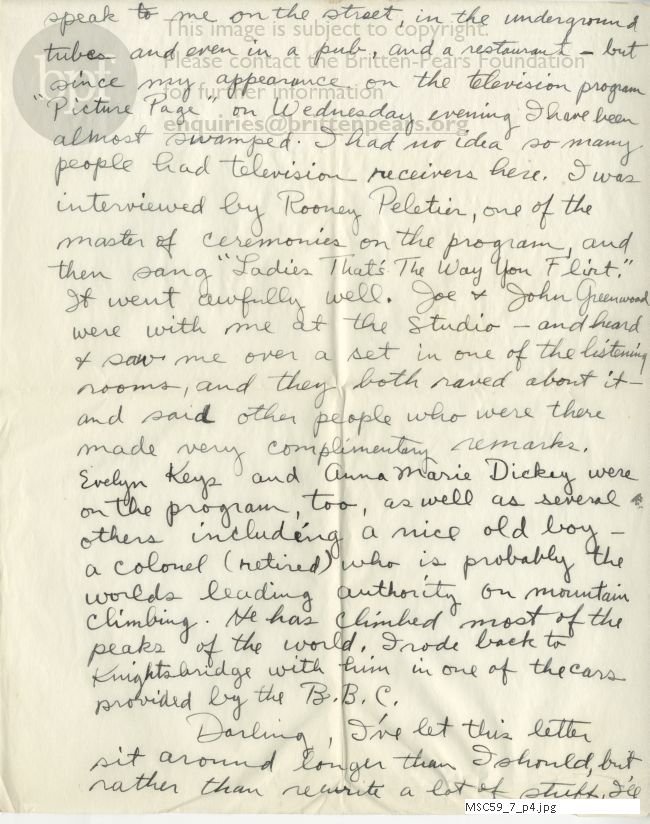 speak to me on the street, in the underground
tubes and even in a pub, and a restaurant - but
since my appearance on the television program
"Picture Page" on Wednesday evening I have been
almost swamped. I had no idea so many
people had television receivers here. I was
interviewed by Rooney Peletier, one of the
master of ceremonies on the program, and
then sang "Ladies That's The Way You Flirt."
It went awfully well. Joe & John Greenwood
were with me at the Studio - and heard
& saw me over a set in one of the listening
rooms, and they both raved about it -
and said other people who were there
made very complimentary remarks.
Evelyn Keys and Anna Marie Dickey were
on the program, too, as well as several
others including a nice old boy -
a colonel (retired) who is probably the
worlds leading authority on mountain
climbing. He has climbed most of the
peaks of the world. I rode back to
Knightsbridge with him in one of the cars
provided by the B.B.C.
Darling, I've let this letter
sit around longer than I should, but
rather than rewrite a lot of stuff, I'll
This image is subject to copyright.
Please contact the Britten-Pears Foundation
for further information
enquiries@brittenpears.org
bpf
MSC59_7_p4.jpg